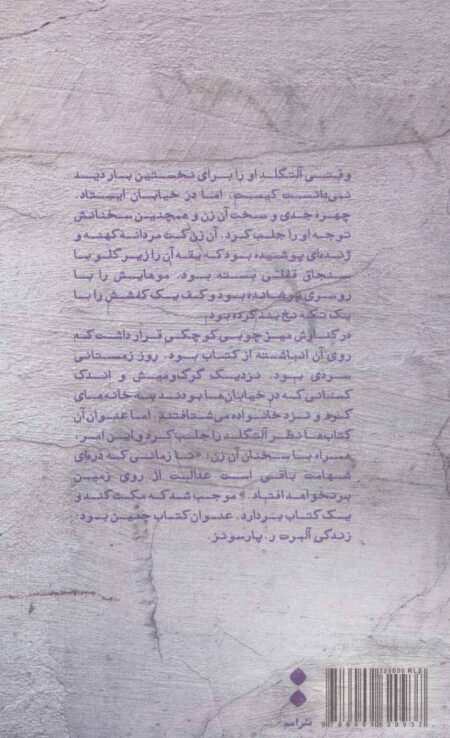 وقتی آلتگلد او را برای نخستین بار دید
نمی‌دانست کیست، اما در خیابان ایستاد.
چهره جدی و سخت آن زن و همچنین سخنانش
توجه او را جلب کرد. آن زن کت مردانه کهنه و
ژنده‌ای پوشیده بود که یقه آن را زیر گلو با
سنجاق قفلی بسته بود. موهایش را با
روسری پوشانده بود و کف یک کفشش را با
یک تکه نخ بند کرده بود.
در کنارش میز چوبی کوچکی قرار داشت که
روی آن انباشته از کتاب بود. روز زمستانی
سردی بود. نزدیک گرگ‌ومیش و اندک
کسانی که در خیابان‌ها بودند به خانه‌های
گرم و نزد خانواده می‌شتافتند. اما عنوان آن
کتاب‌ها نظر آلتگلد را جلب کرد و این امر،
همراه با سخنان آن زن: «تا زمانی که ذره‌ای
شهامت باقی است عدالت از روی زمین
برنخواهد افتاد.» موجب شد که مکث کند و
یک کتاب بردارد. عنوان کتاب چنین بود:
زندگی آلبرت ر. پارسونز.
320000 RLS
نشر اسم